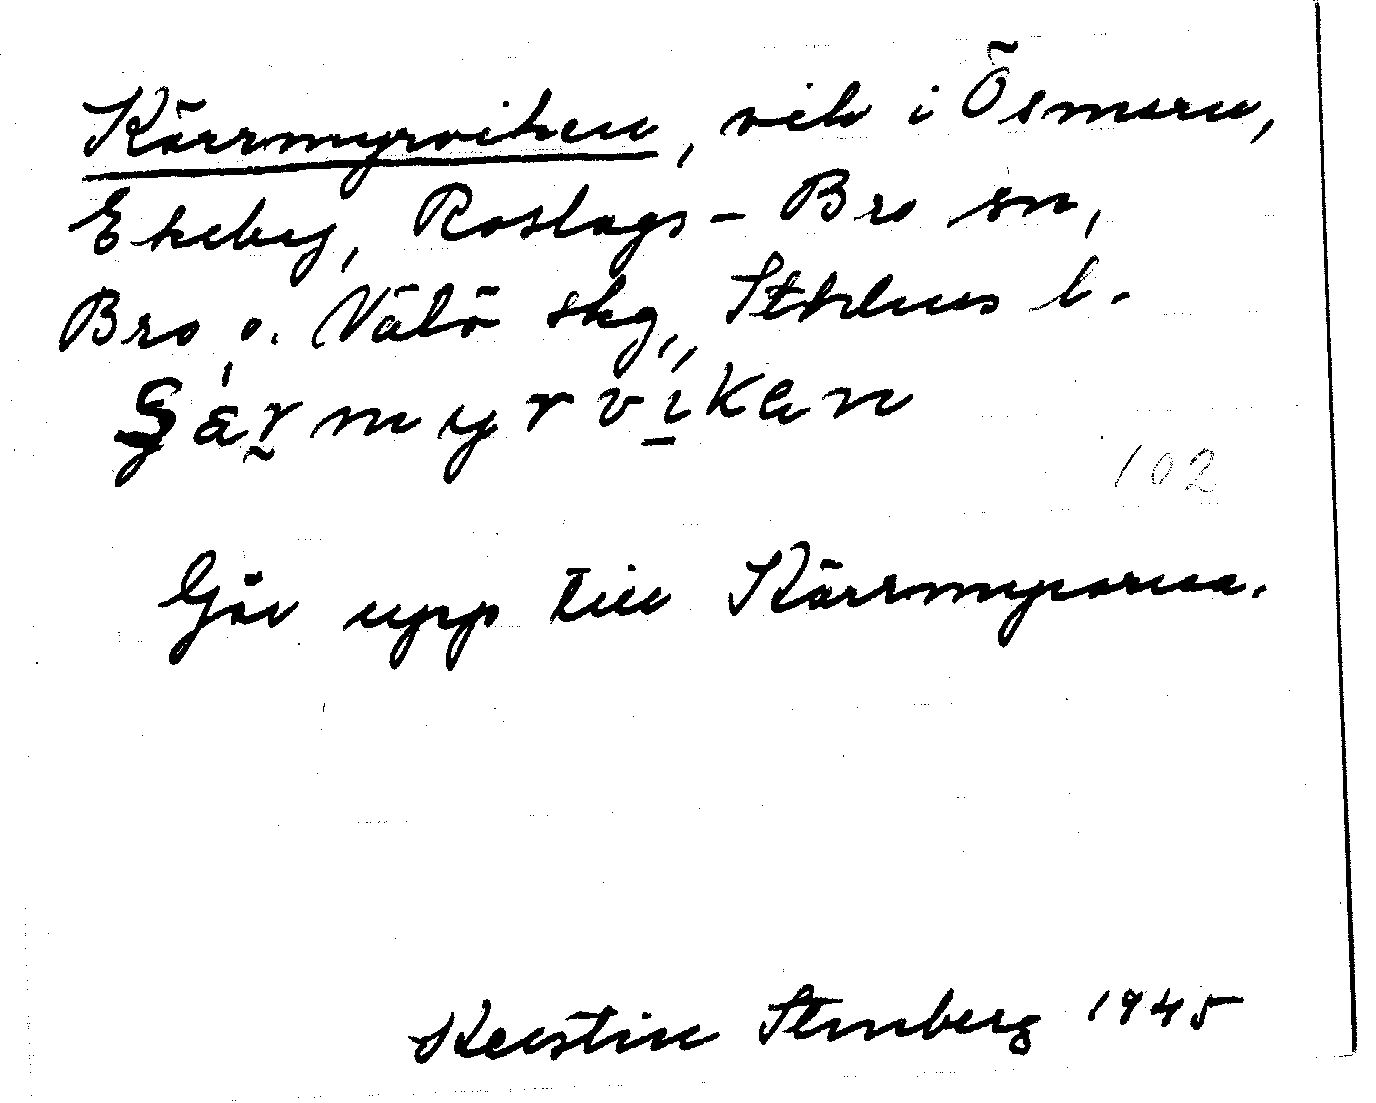 Kärrmyrviken, vik i Ösmaren,
Ekeby, Roslags-Bro sn,
Bro o. Vätö skg, Sthlms l.
102
Går upp till Kärrmyrarna.
Kerstin Stenberg 1945